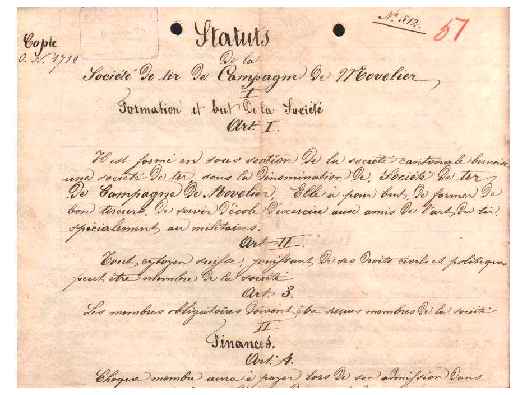 Copie
Statuts
N° 813.
57
de la
Société de tir de Campagne de Movelier
I
Formation et but de la Société
Art. I.
Il est formé en sous section de la société cantonale bernoise
une société de tir sous la dénomination de Société de tir
de Campagne de Movelier. Elle a pour but, de former de
bons tireurs, de servir d'école d'exercice aux amis de l'art du tir
spécialement, au militaires.
Art. II.
Tout, citoyen suisse, jouissant, de ses droits civils et politique
peut être membre de la société
Art. 3.
Les membres obligatoires doivent être membres de la société
II
Finances.
Art. 4.
Chaque membre aura à payer lors de son admission dans